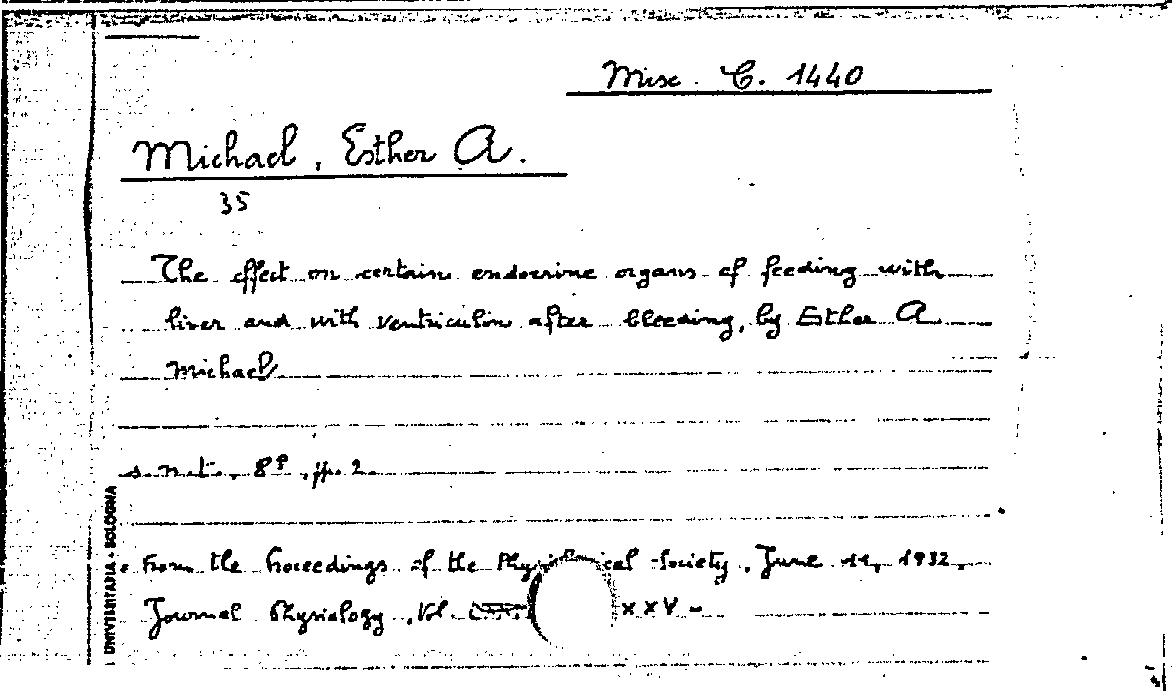 Misc. C. 1440
Michael, Esther A.
35
The effect on certain endocrine organs of feeding with
liver and with ventriculin after bleeding, by Esther A
Michael
s. n. t., 8º, pp. 2.
From the Proceedings of the Physiological Society, June 11, 1932,
Journal Physiology, Vol. XXV -
UNIVERSITARIA - BOLOGNA